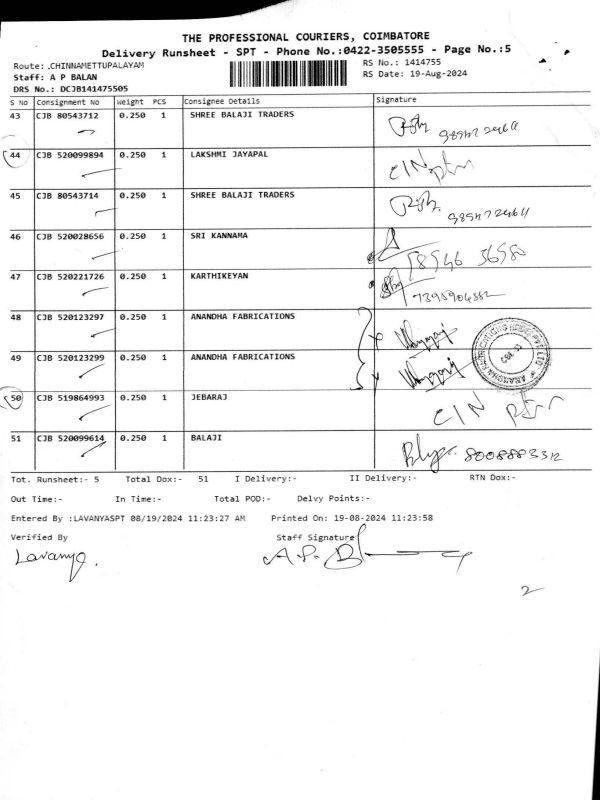 THE PROFESSIONAL COURIERS, COIMBATORE
Delivery Runsheet - SPT - Phone No.:0422-3505555 - Page No.:5
Route: .CHINNAMETTUPALAYAM RS No.: 1414755
Staff: A P BALAN RS Date: 19-Aug-2024
DRS No.: DCJB141475505
S No Consignment No Weight PCS Consignee Details Signature
43 CJB 80543712 0.250 1 SHREE BALAJI TRADERS
44 CJB 520099894 0.250 1 LAKSHMI JAYAPAL CIN
45 CJB 80543714 0.250 1 SHREE BALAJI TRADERS
46 CJB 520028656 0.250 1 SRI KANNAMA
47 CJB 520221726 0.250 1 KARTHIKEYAN
48 CJB 520123297 0.250 1 ANANDHA FABRICATIONS
49 CJB 520123299 0.250 1 ANANDHA FABRICATIONS
50 CJB 519864993 0.250 1 JEBARAJ CIN
51 CJB 520099614 0.250 1 BALAJI 8008883312
Tot. Runsheet:- 5 Total Dox:- 51 I Delivery:- II Delivery:- RTN Dox:-
Out Time:- In Time:- Total POD:- Delvy Points:-
Entered By :LAVANYASPT 08/19/2024 11:23:27 AM Printed On: 19-08-2024 11:23:58
Verified By Staff Signature
Lavanya. A.P. B
2